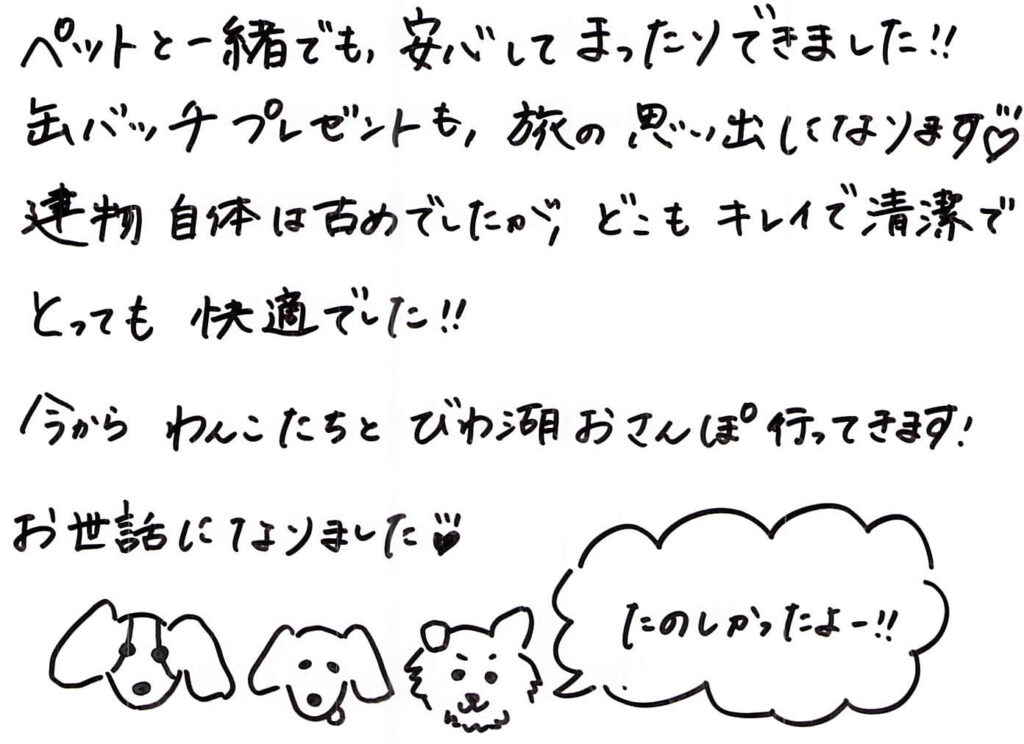 ペットと一緒でも、安心してまったりできました!!
缶バッチプレゼントも、旅の思い出しくなります♡
建物自体は古めでしたが、どこもキレイで清潔で
とっても快適でした!!
今からわんこたちとびわ湖おさんぽ行ってきます!
お世話になりました♥
たのしかったよー!!